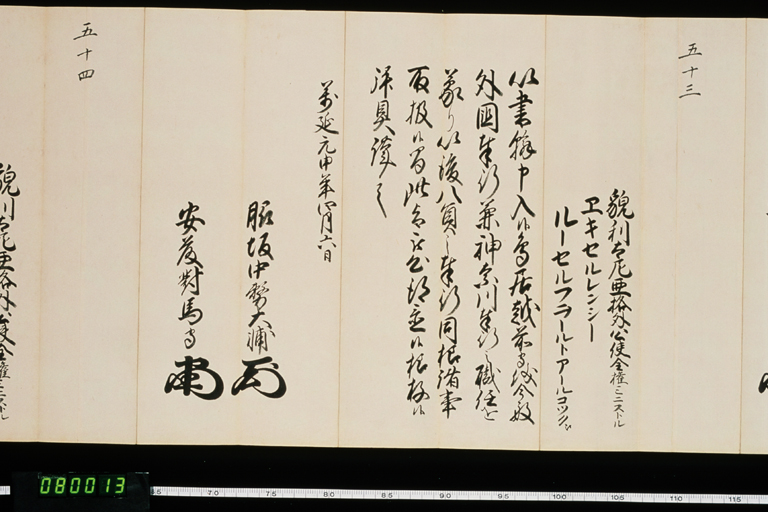 五十三
貌利太尼亜格外公使全権ミニストル
ヱキセルレンシー
ルーセルフラールトアールコック
以書翰申入候鳥居越前守儀今般
外國奉行兼神奈川奉行之職任を
蒙り以後八員之奉行同様諸事
取扱候間此旨
拝具謹言
萬延元申年
六日
脇坂中務大輔
安藤對馬守
五十四
貌利太尼亜格外公使全権ミニストル
080013
7.0
7.5
8.0
8.5
9.0
9.5
10.0
10.5
11.0
11.5